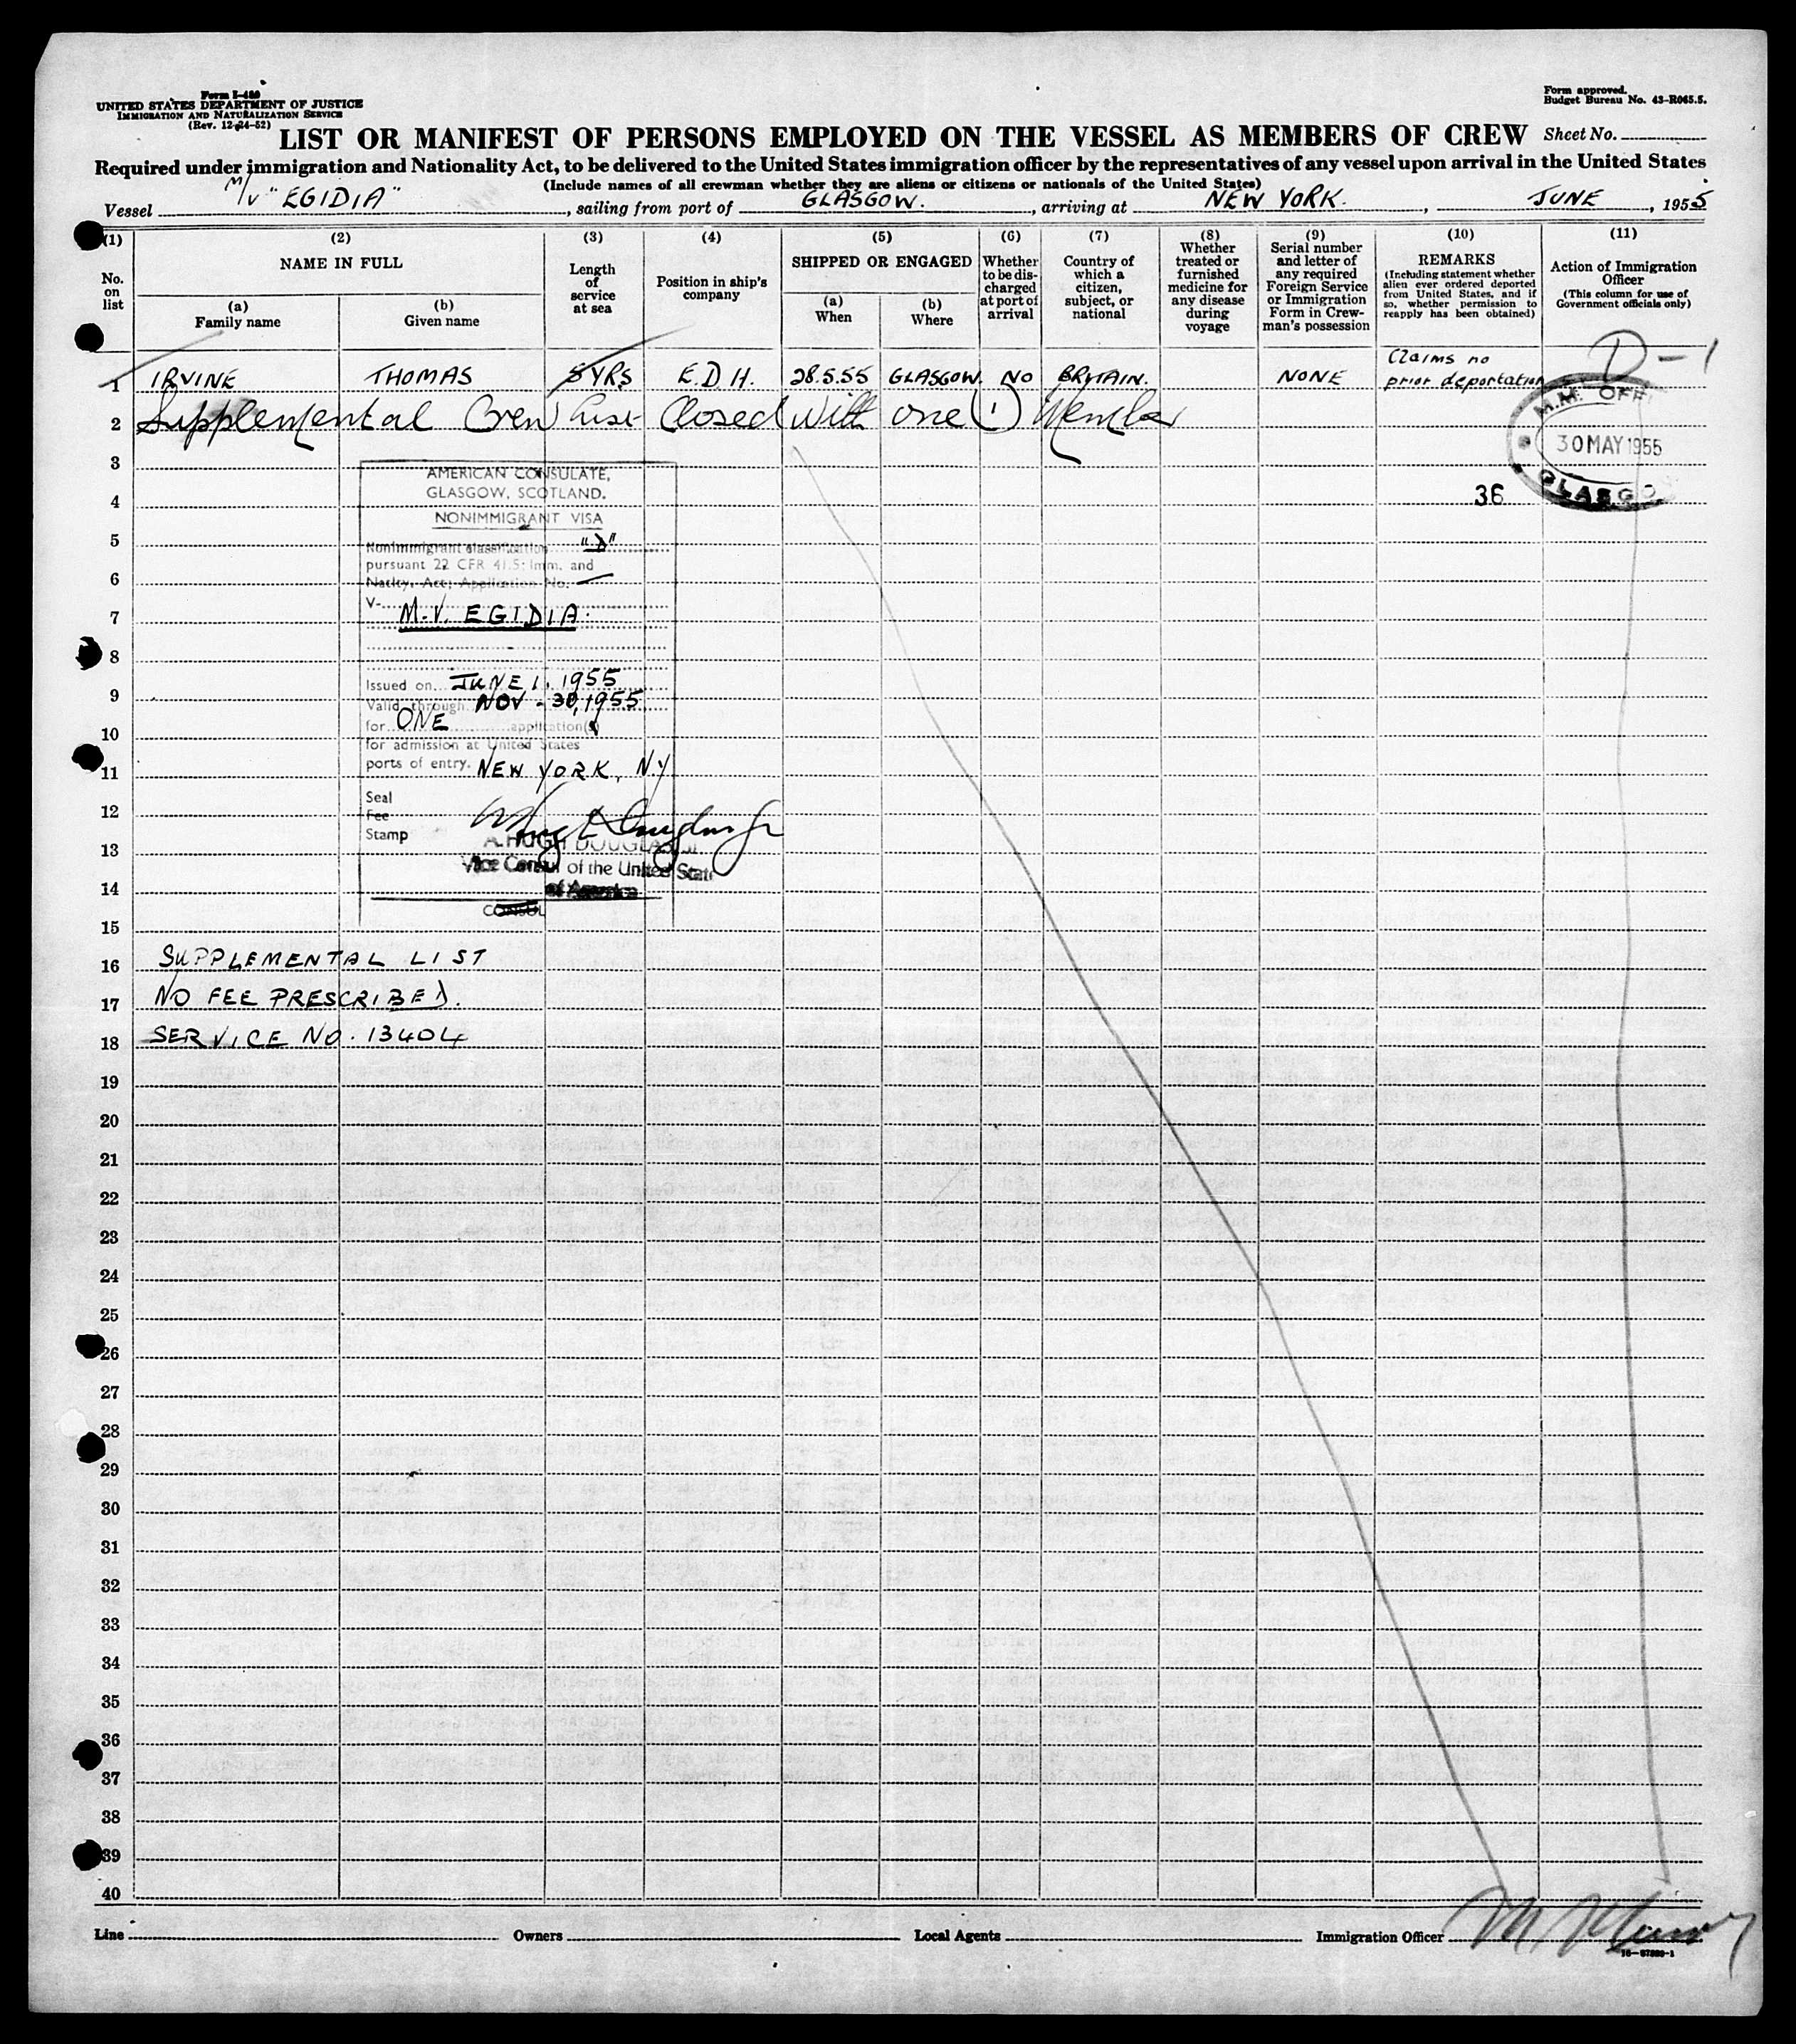 Form I-480
UNITED STATES DEPARTMENT OF JUSTICE
IMMIGRATION AND NATURALIZATION SERVICE
(Rev. 12-24-52)
Form approved.
Budget Bureau No. 43-R065.5.
LIST OR MANIFEST OF PERSONS EMPLOYED ON THE VESSEL AS MEMBERS OF CREW
Sheet No.
Required under immigration and Nationality Act, to be delivered to the United States immigration officer by the representatives of any vessel upon arrival in the United States
(Include names of all crewman whether they are aliens or citizens or nationals of the United States)
Vessel M/V "EGIDIA", sailing from port of GLASGOW., arriving at NEW YORK., JUNE, 1955
(1) No. on list
(2) NAME IN FULL
(a) Family name
(b) Given name
(3) Length of service at sea
(4) Position in ship's company
(5) SHIPPED OR ENGAGED
(a) When
(b) Where
(6) Whether to be discharged at port of arrival
(7) Country of which a citizen, subject, or national
(8) Whether treated or furnished medicine for any disease during voyage
(9) Serial number and letter of any required Foreign Service or Immigration Form in Crewman's possession
(10) REMARKS (Including statement whether alien ever ordered deported from United States, and if so, whether permission to reapply has been obtained)
(11) Action of Immigration Officer (This column for use of Government officials only)
1 IRVINE THOMAS 5 YRS E.D.H. 28.5.55 GLASGOW. NO BRITAIN. NONE Claims no prior deportation D-1
2 Supplemental Crew List Closed With one (1) Member
M.M. OFFI
30 MAY 1955
GLASGO
36
3
4
5
6
7
8
9
10
11
12
13
14
15
AMERICAN CONSULATE,
GLASGOW, SCOTLAND.
NONIMMIGRANT VISA
Nonimmigrant classification "D"
pursuant 22 CFR 41.5; Imm. and
Natlty. Act; Application No.
V-
M.V. EGIDIA.
Issued on JUNE 1, 1955
Valid through NOV - 30, 1955
for ONE application(s)
for admission at United States
ports of entry. NEW YORK, N.Y
Seal
Fee
Stamp
A. HUGH DOUGLAS
Vice Consul of the United State
of America
CONSUL
16 SUPPLEMENTAL LIST
17 NO FEE PRESCRIBED.
18 SERVICE NO. 13404
19
20
21
22
23
24
25
26
27
28
29
30
31
32
33
34
35
36
37
38
39
40
Line
Owners
Local Agents
Immigration Officer